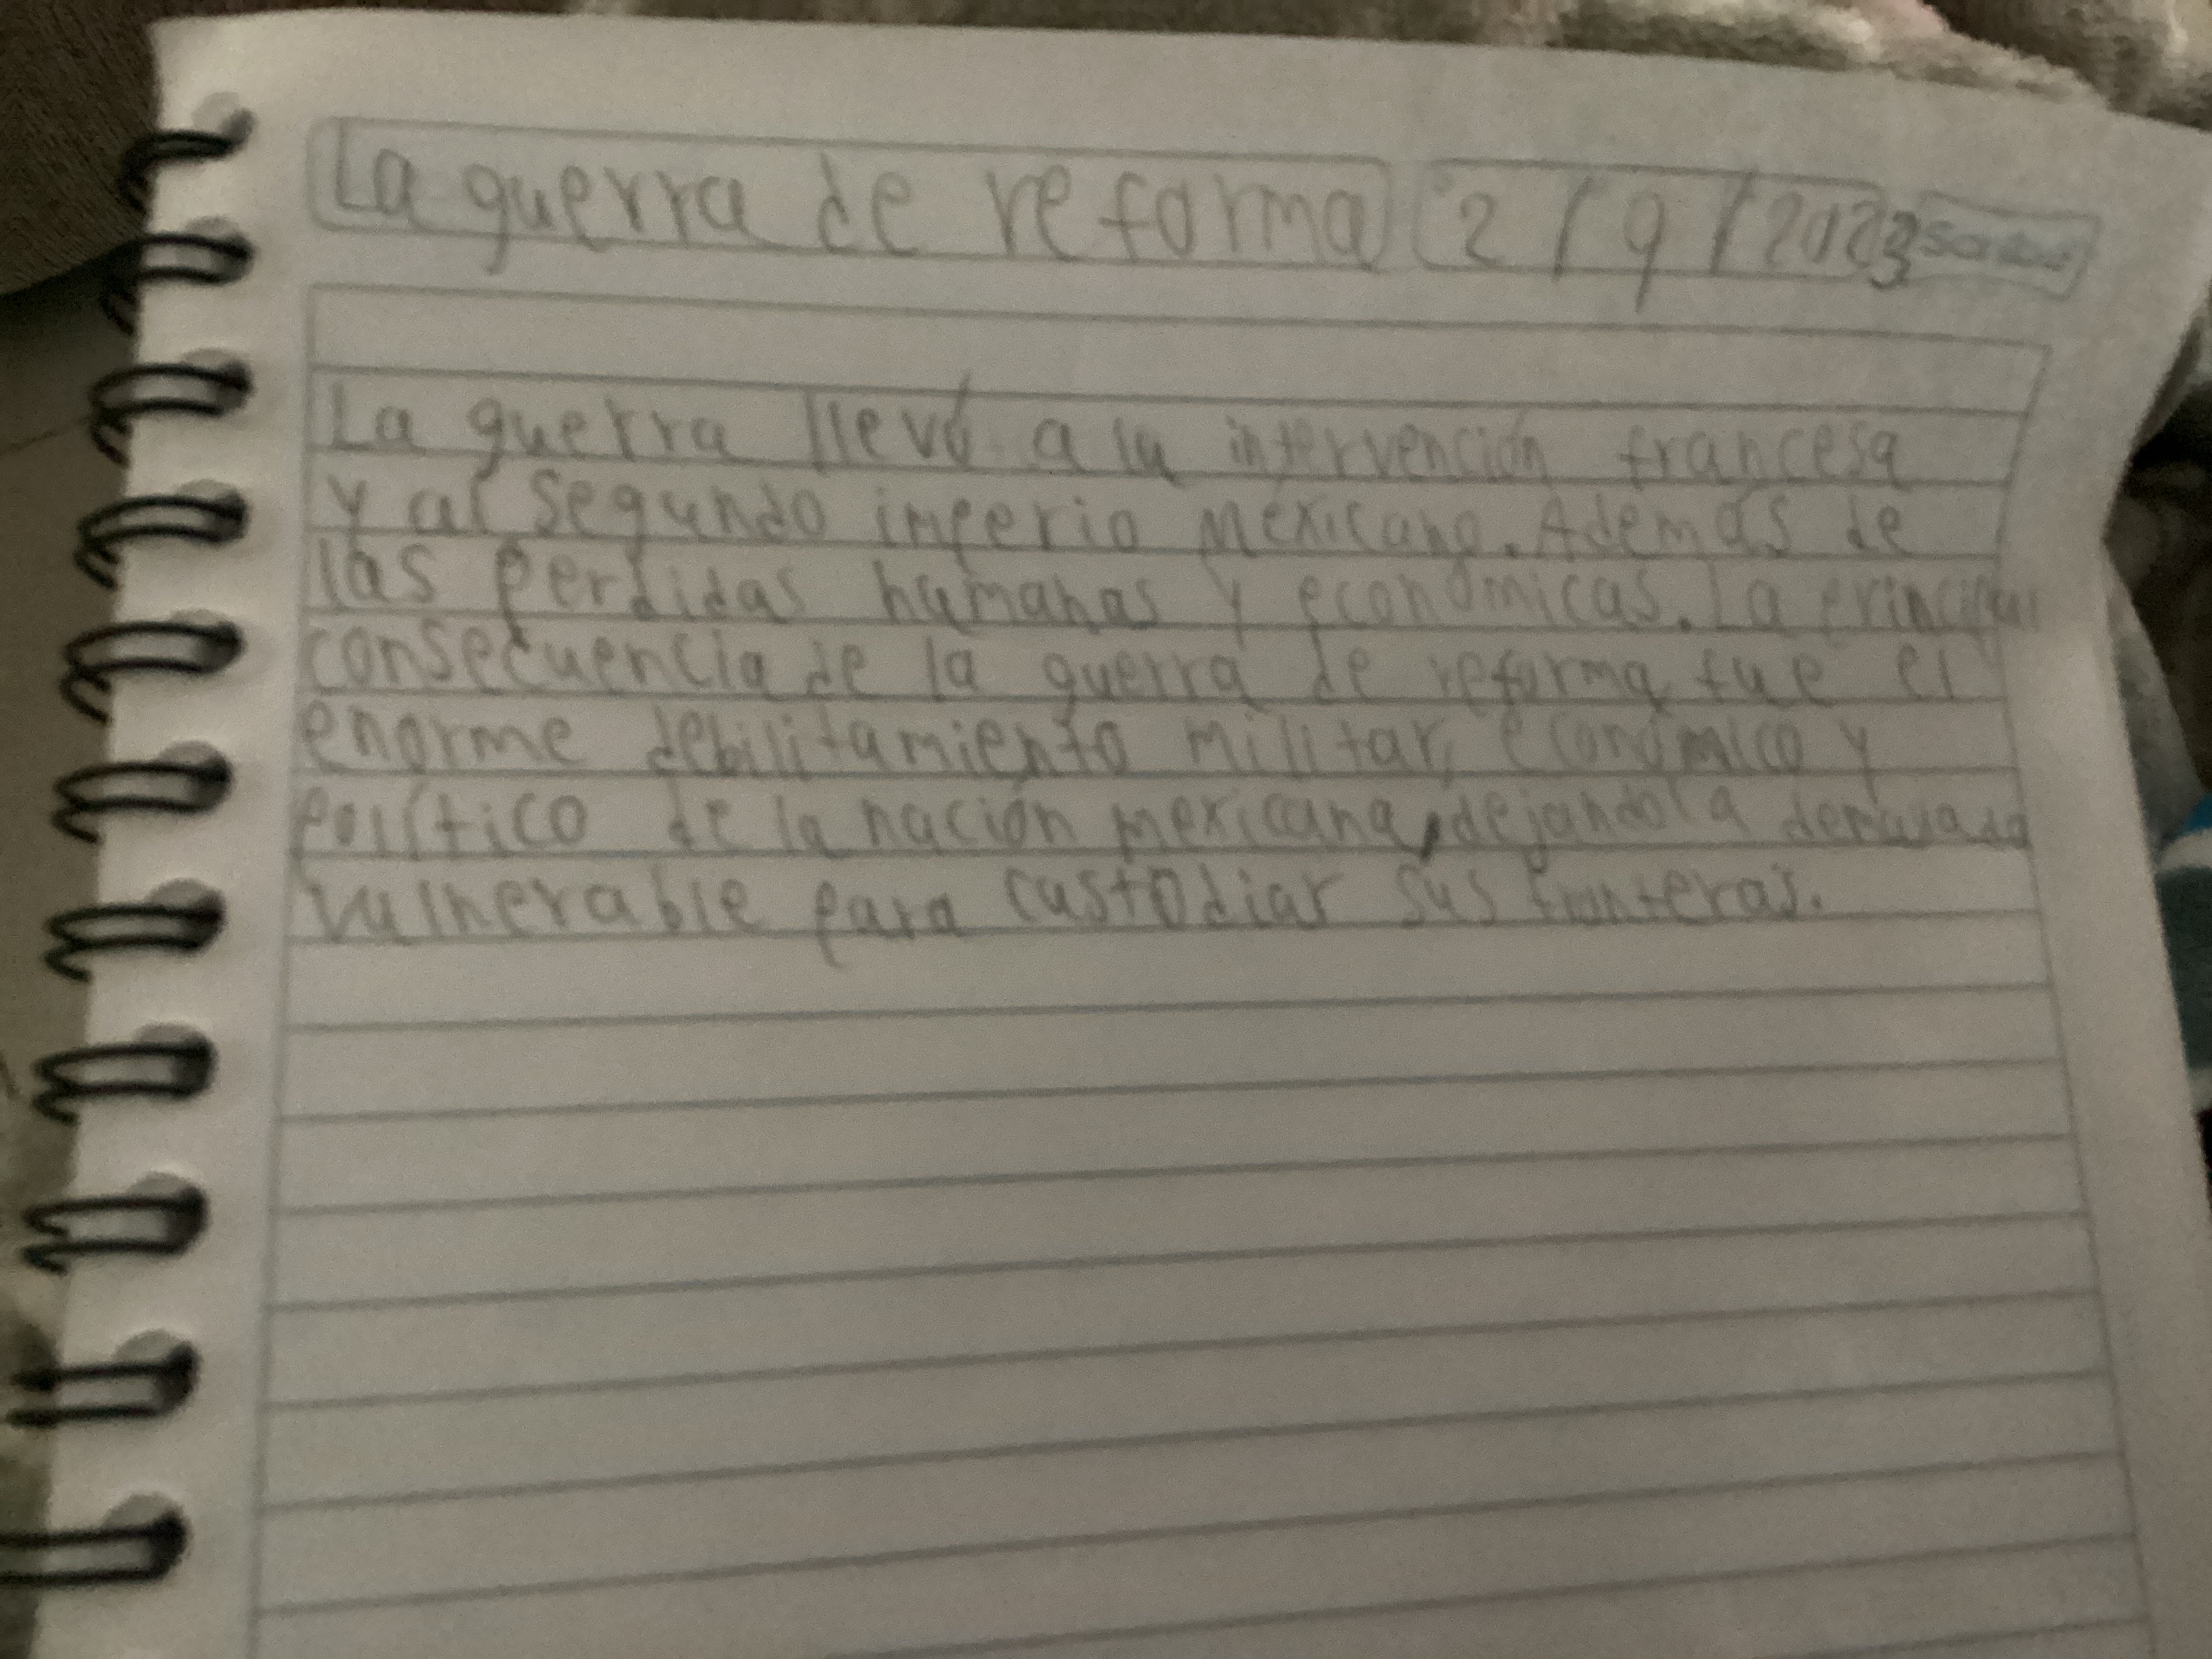 La guerra de reforma 2/9/2023 Sabado
La guerra llevó a la intervención francesa
y al segundo imperio Mexicano. Además de
las perdidas humanas y económicas. La principal
consecuencia de la guerra de reforma fue el
enorme debilitamiento militar, económico y
político de la nación mexicana, dejandola demasiado
vulnerable para custodiar sus fronteras.